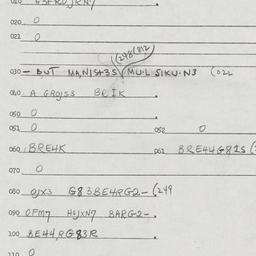 020 0
021 0
(248(812
030 - BUT MA,NIS+3S/MU·L SIKU·N3 (022
040 A GROJSS BRIK .
050 0
051 0 052 0
060 BRE4K 061 BRE44G81S (
070 0
080 0JX3 G83BE4RG2-(249
090 0FM7 H0JXN7 BARG2-.
100 BE44,RG83R
110 0